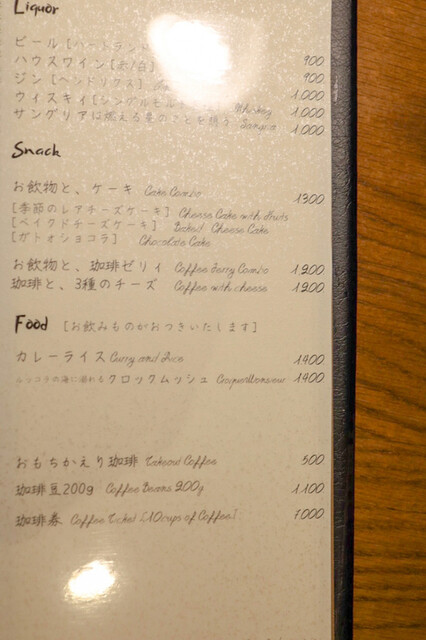 Liquor
ビール［ハートランド
ハウスワイン［赤/白］ 900
ジン［ヘンドリックス］ 900
ウイスキイ［シングルモルト Whiskey 1.000
サングリアは燃える夢のことを想う Sangria 1.000
1.000
Snack
お飲物と、ケーキ Cake Combo 1300
［季節のレアチーズケーキ］ Cheese Cake with fruits
［ベイクドチーズケーキ］ Baked Cheese Cake
［ガトオショコラ］ Chocolate Cake
お飲物と、珈琲ゼリイ Coffee Jerry Combo 1200
珈琲と、3種のチーズ Coffee with cheese 1200
Food ［お飲みものがおつきいたします］
カレーライス Curry and Rice 1.400
ルッコラの海に溺れるクロックムッシュ CroqueMonsieur 1.400
おもちかえり珈琲 Takeout Coffee 500
珈琲豆200g Coffee Beans 200g 1.100
珈琲券 Coffee Ticket [10cups of Coffee] 7.000